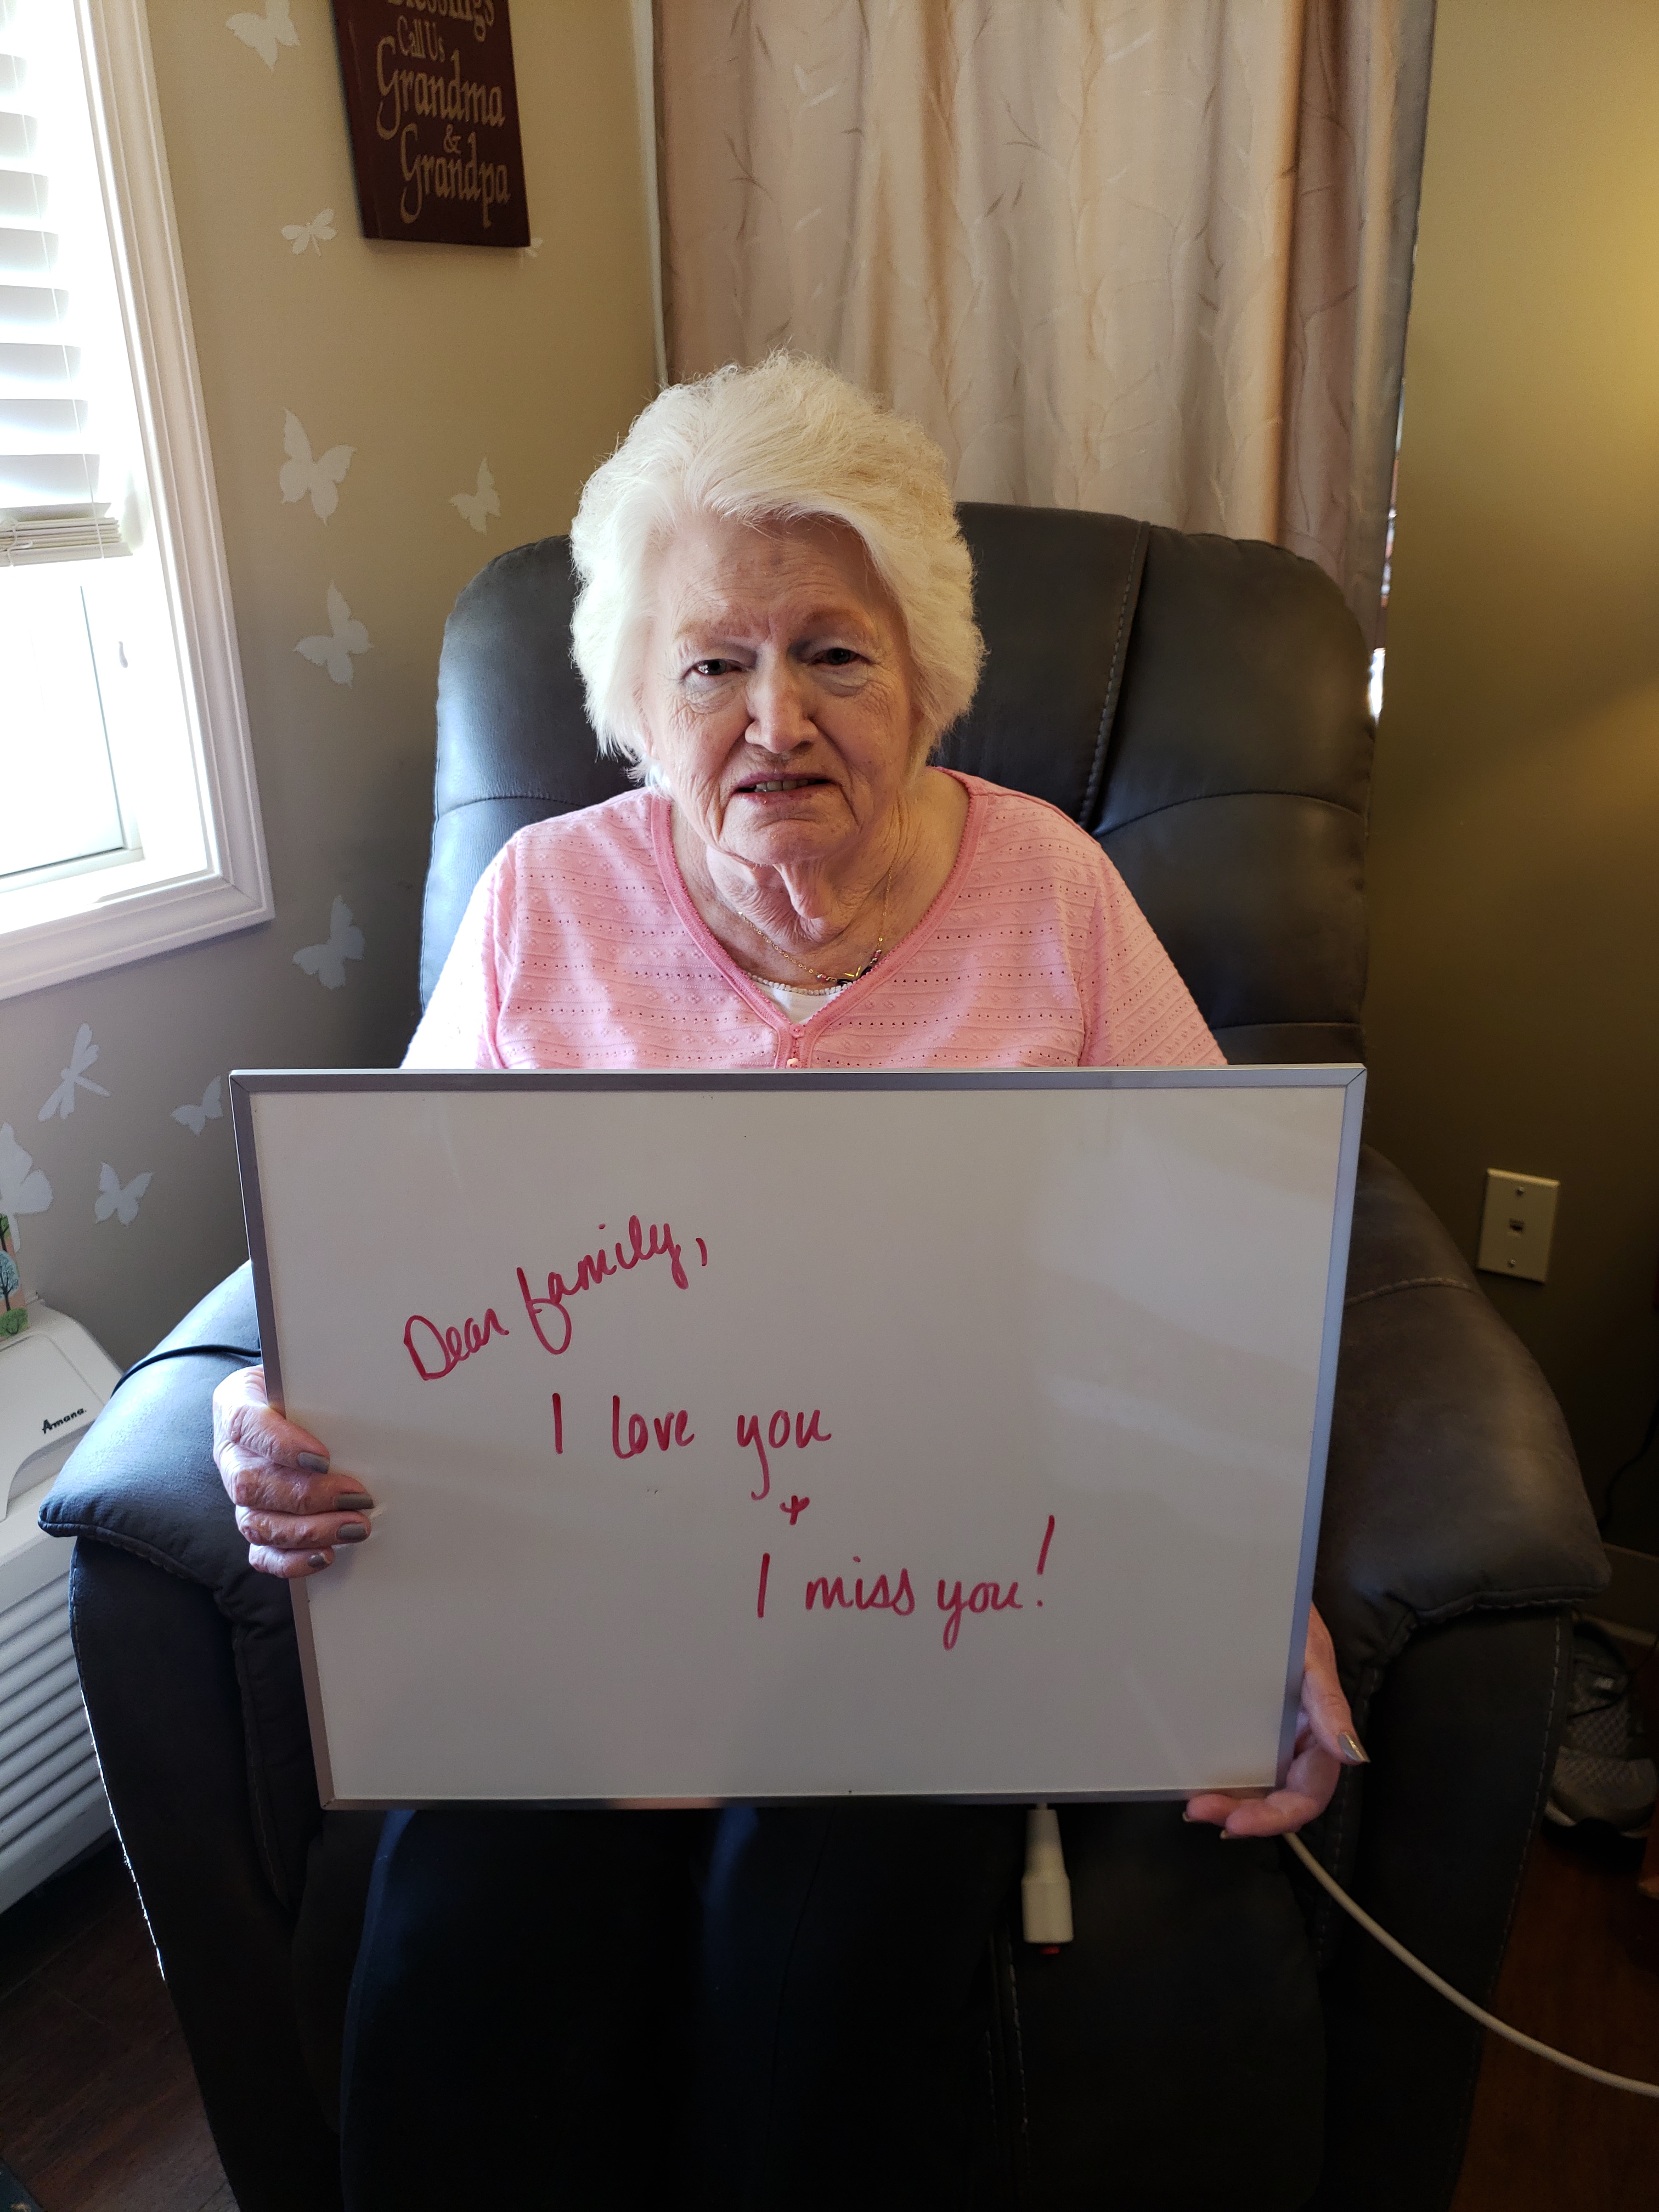 Blessings
Call Us
Grandma
&
Grandpa
Dear family,
I love you
+
I miss you!
Amana